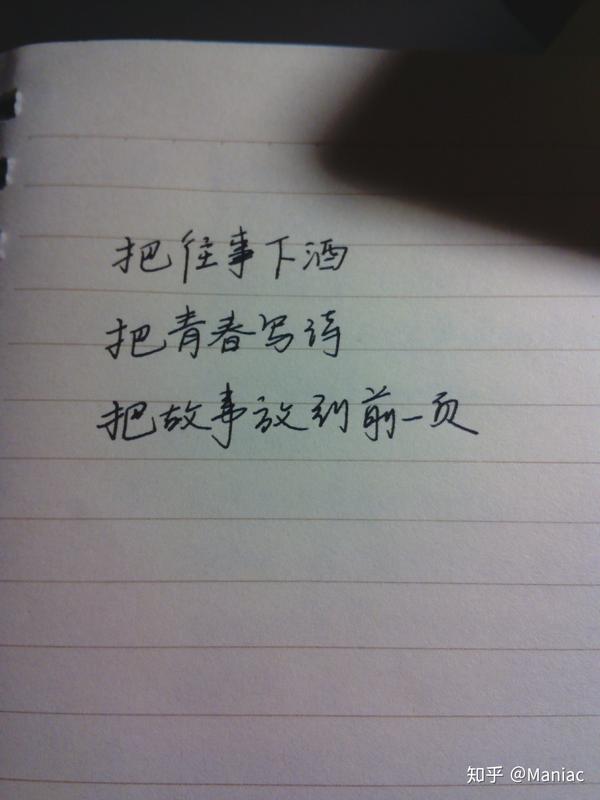 把往事下酒
把青春写诗
把故事放到前一页
知乎 @Maniac